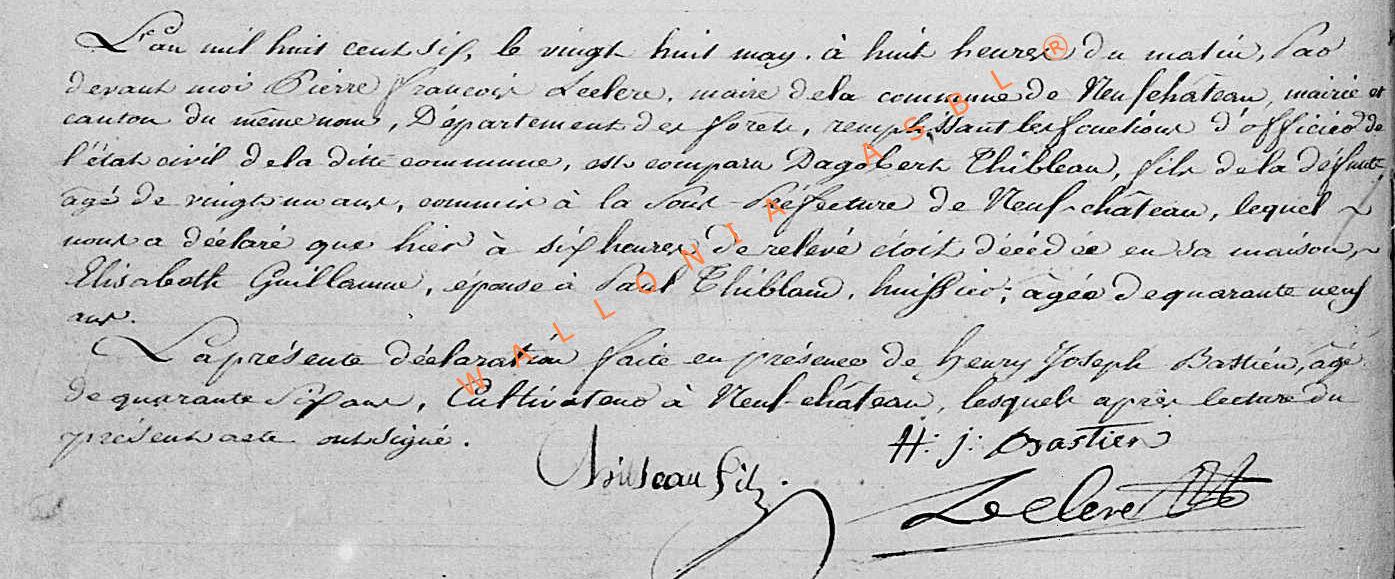 L'an mil huit cent six, le vingt huit may, à huit heures du matin, Par
devant moi Pierre françois Leclere, maire de la commune de Neufchâteau, mairie et
canton du même nom, Département des forêts, remplissant les fonctions d'officier de
l'état civil de la ditte commune, est comparu Dagobert Thibleau, fils de la défunte,
âgé de vingt un ans, commis à la Sous-Préfecture de Neuf-château, lequel ~
nous a déclaré que hier à six heures de relevé étoit décédée en sa maison, ~
Elisabeth Guillaume, épouse à Paul Thiblaud, huissier, âgée de quarante neuf
ans.
La présente déclaration faite en présence de henry Joseph Bastien, âgé
de quarante six ans, Cultivateur à Neuf-château, lesquels après lecture du
présent acte ont signé.
H: j: Bastien
fils
Leclere
WALLONIA ASBL ®